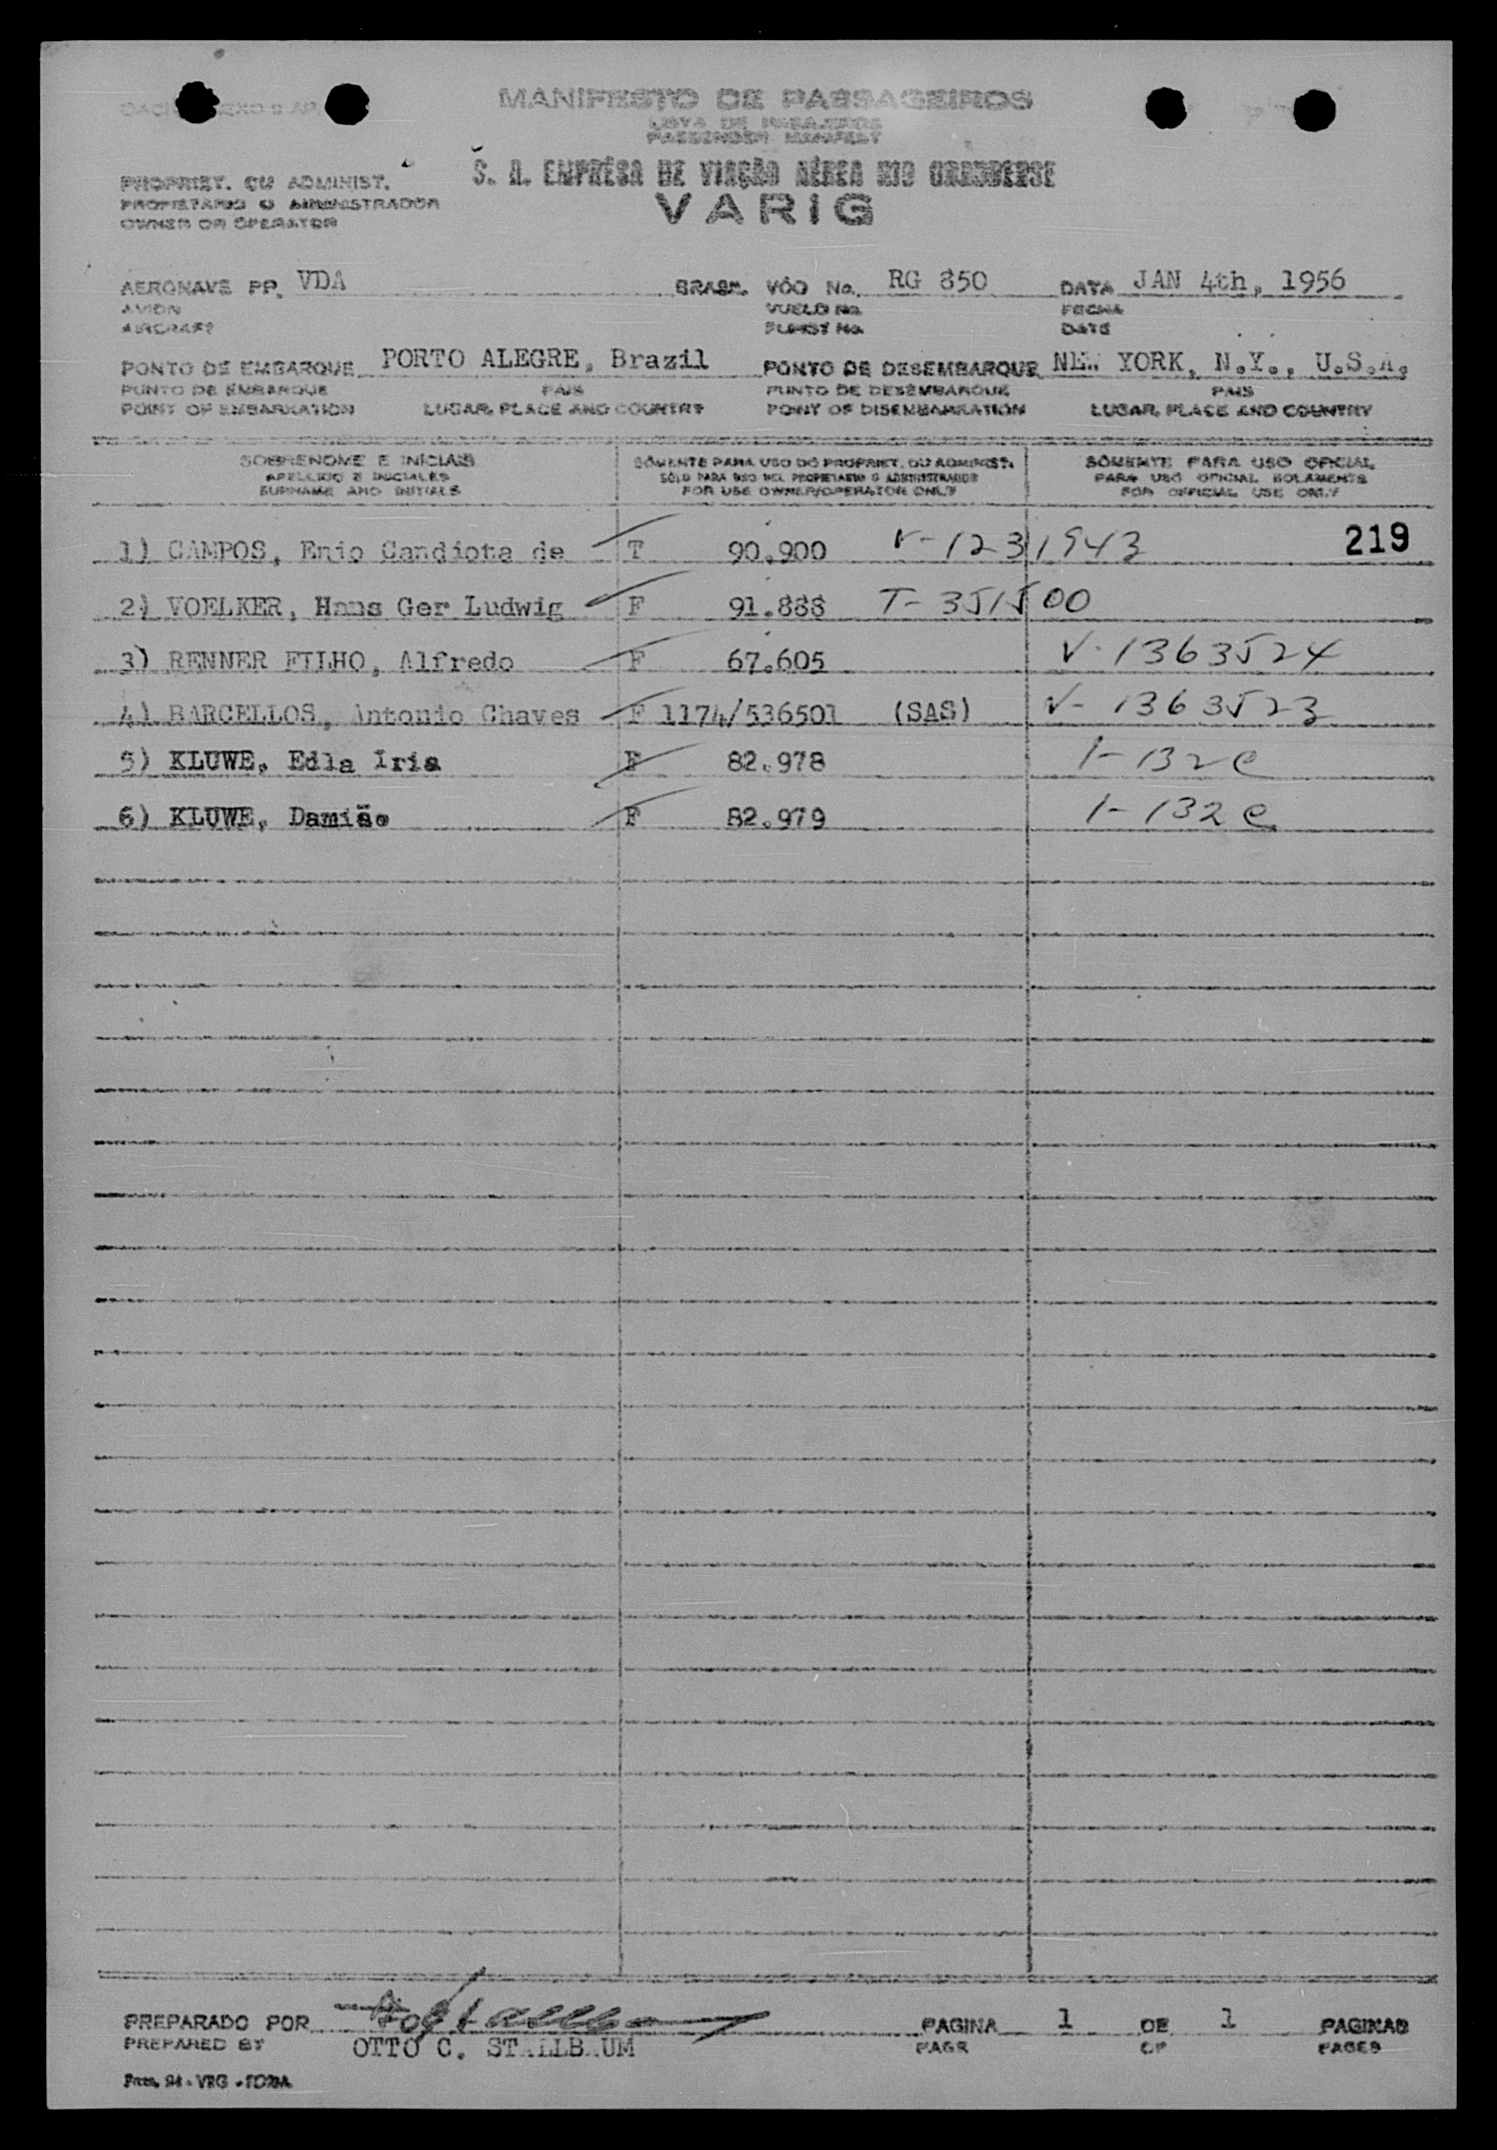 MANIFESTO DE PASSAGEIROS
LISTA DE PASAJEROS
PASSENGER MANIFEST
PROPRIET. OU ADMINIST.
S. A. EMPRÊSA DE VIAÇÃO AÉREA RIO GRANDENSE
PROPIETARIO O ADMINISTRADOR
VARIG
OWNER OR OPERATOR
AERONAVE PP. VDA BRASIL VÔO No. RG 850 DATA JAN 4th, 1956
AVION VUELO No. FECHA
AIRCRAFT FLIGHT No. DATE
PONTO DE EMBARQUE PORTO ALEGRE, Brazil PONTO DE DESEMBARQUE NEW YORK, N.Y., U.S.A.
PUNTO DE EMBARQUE PAIS PUNTO DE DESEMBARQUE PAIS
POINT OF EMBARKATION LUGAR, PLACE AND COUNTRY POINT OF DISEMBARKATION LUGAR, PLACE AND COUNTRY
SOBRENOME E INICIAIS SÓMENTE PARA USO DO PROPRIET. OU ADMINIST. SÓMENTE PARA USO OFICIAL
APELLIDO E INICIALES SÓLO PARA USO DEL PROPIETARIO O ADMINISTRADOR PARA USO OFICIAL SOLAMENTE
SURNAME AND INITIALS FOR USE OWNER/OPERATOR ONLY FOR OFFICIAL USE ONLY
1) CAMPOS, Enio Candiota de T 90.900 V-1231943 219
2) VOELKER, Hans Ger Ludwig F 91.888 T-351500
3) RENNER FILHO, Alfredo F 67.605 V-1363524
4) BARCELLOS, Antonio Chaves F 1174/536501 (SAS) V-1363523
5) KLUWE, Edla Iria F 82.978 1-132e
6) KLUWE, Damião F 82.979 1-132e
PREPARADO POR PAGINA 1 DE 1 PAGINAS
PREPARED BY OTTO C. STALLBAUM PAGE OF PAGES